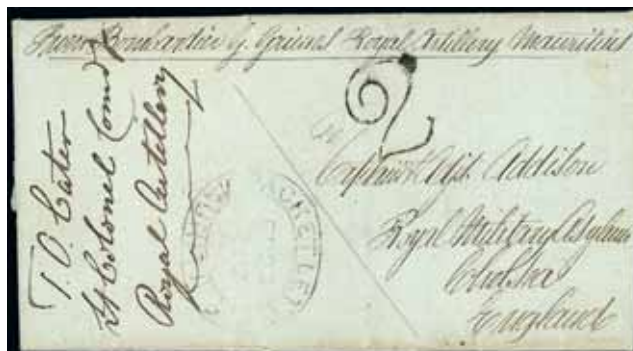 From Bombardier G. Royal Artillery Mauritius
2
T. O. Cater
Lt Colonel Comdg
Royal Artillery
PACKET LETTER
Captain & Adjt. Addison
Royal Military Asylum
Chelsea
England